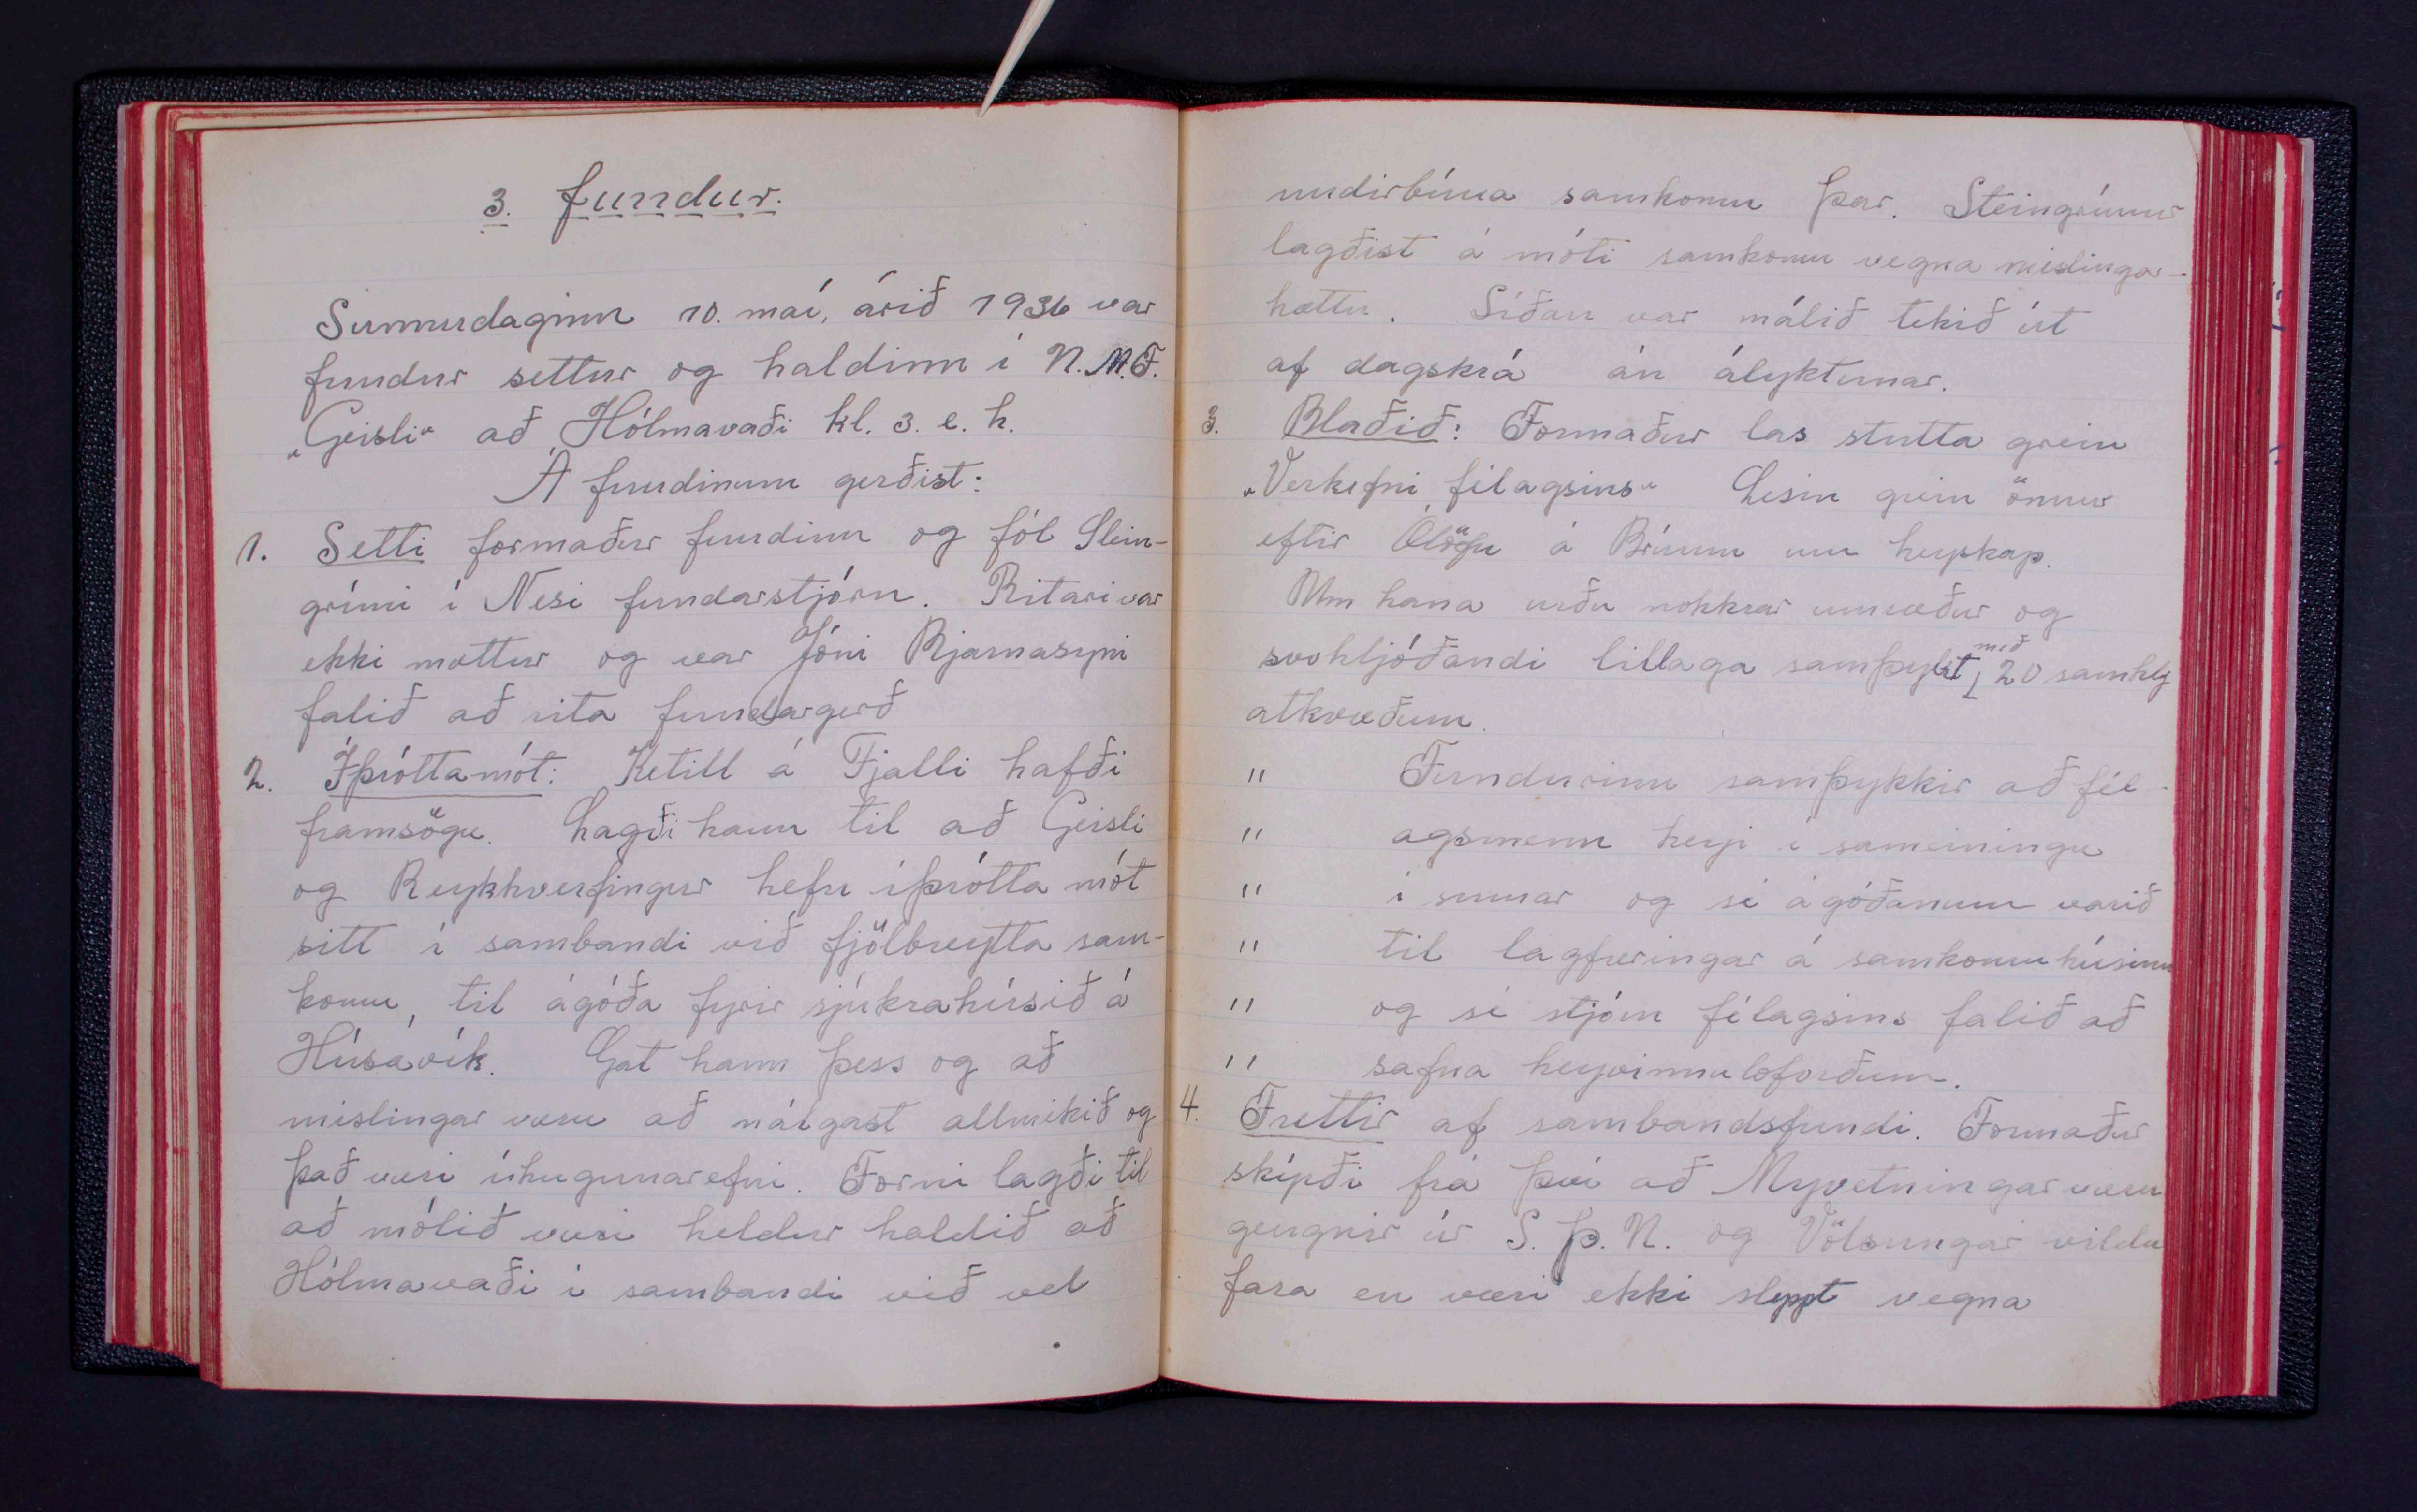 3. fundur.
Sunnudaginn 10. maí, árið 1936 var
fundur settur og haldinn í U.M.F.
„Geisli“ að Hólmavaði kl. 3. e. h.
Á fundinum gerðist:
1. Setti formaður fundinn og fól Stein-
grími í Nesi fundarstjórn. Ritari var
ekki mættur og var Jóni Bjarnasyni
falið að rita fundargerð
2. Íþróttamót: Ketill á Fjalli hafði
framsögu. Lagði hann til að Geisli
og Reykhverfingur hefu íþrótta mót
sitt í sambandi við fjölbreytta sam-
komu, til ágóða fyrir sjúkrahúsið á
Húsavík. Gat hann þess og að
mislingar væru að nálgast allmikið og
það væri íhugunarefni. Forni lagði til
að mótið væri heldur haldið að
Hólmavaði í sambandi við vel
undirbúna samkomu þar. Steingrímur
lagðist á móti samkomu vegna mislingar-
hættu. Síðan var málið tekið út
af dagskrá án ályktunar.
3. Blaðið: Formaður las stutta grein
„Verkefni félagsins“ Lesin grein önnur
eftir Ólöfu á Brúum um heyskap.
Um hana urðu nokkrar umræður og
svohljóðandi tillaga samþykt með 20 samhlj
atkvæðum.
" Fundurinn samþykkir að fél-
" agsmenn heyji í sameiningu
" í sumar og sé ágóðanum varið
" til lagfæringar á samkomuhúsinu
" og sé stjórn félagsins falið að
" safna heyvinnuloforðum.
4. Fréttir af sambandsfundi. Formaður
skýrði frá því að Mývetningar væru
gengnir úr S. Þ. U. og Völsungar vildu
fara en væri ekki sleppt vegna